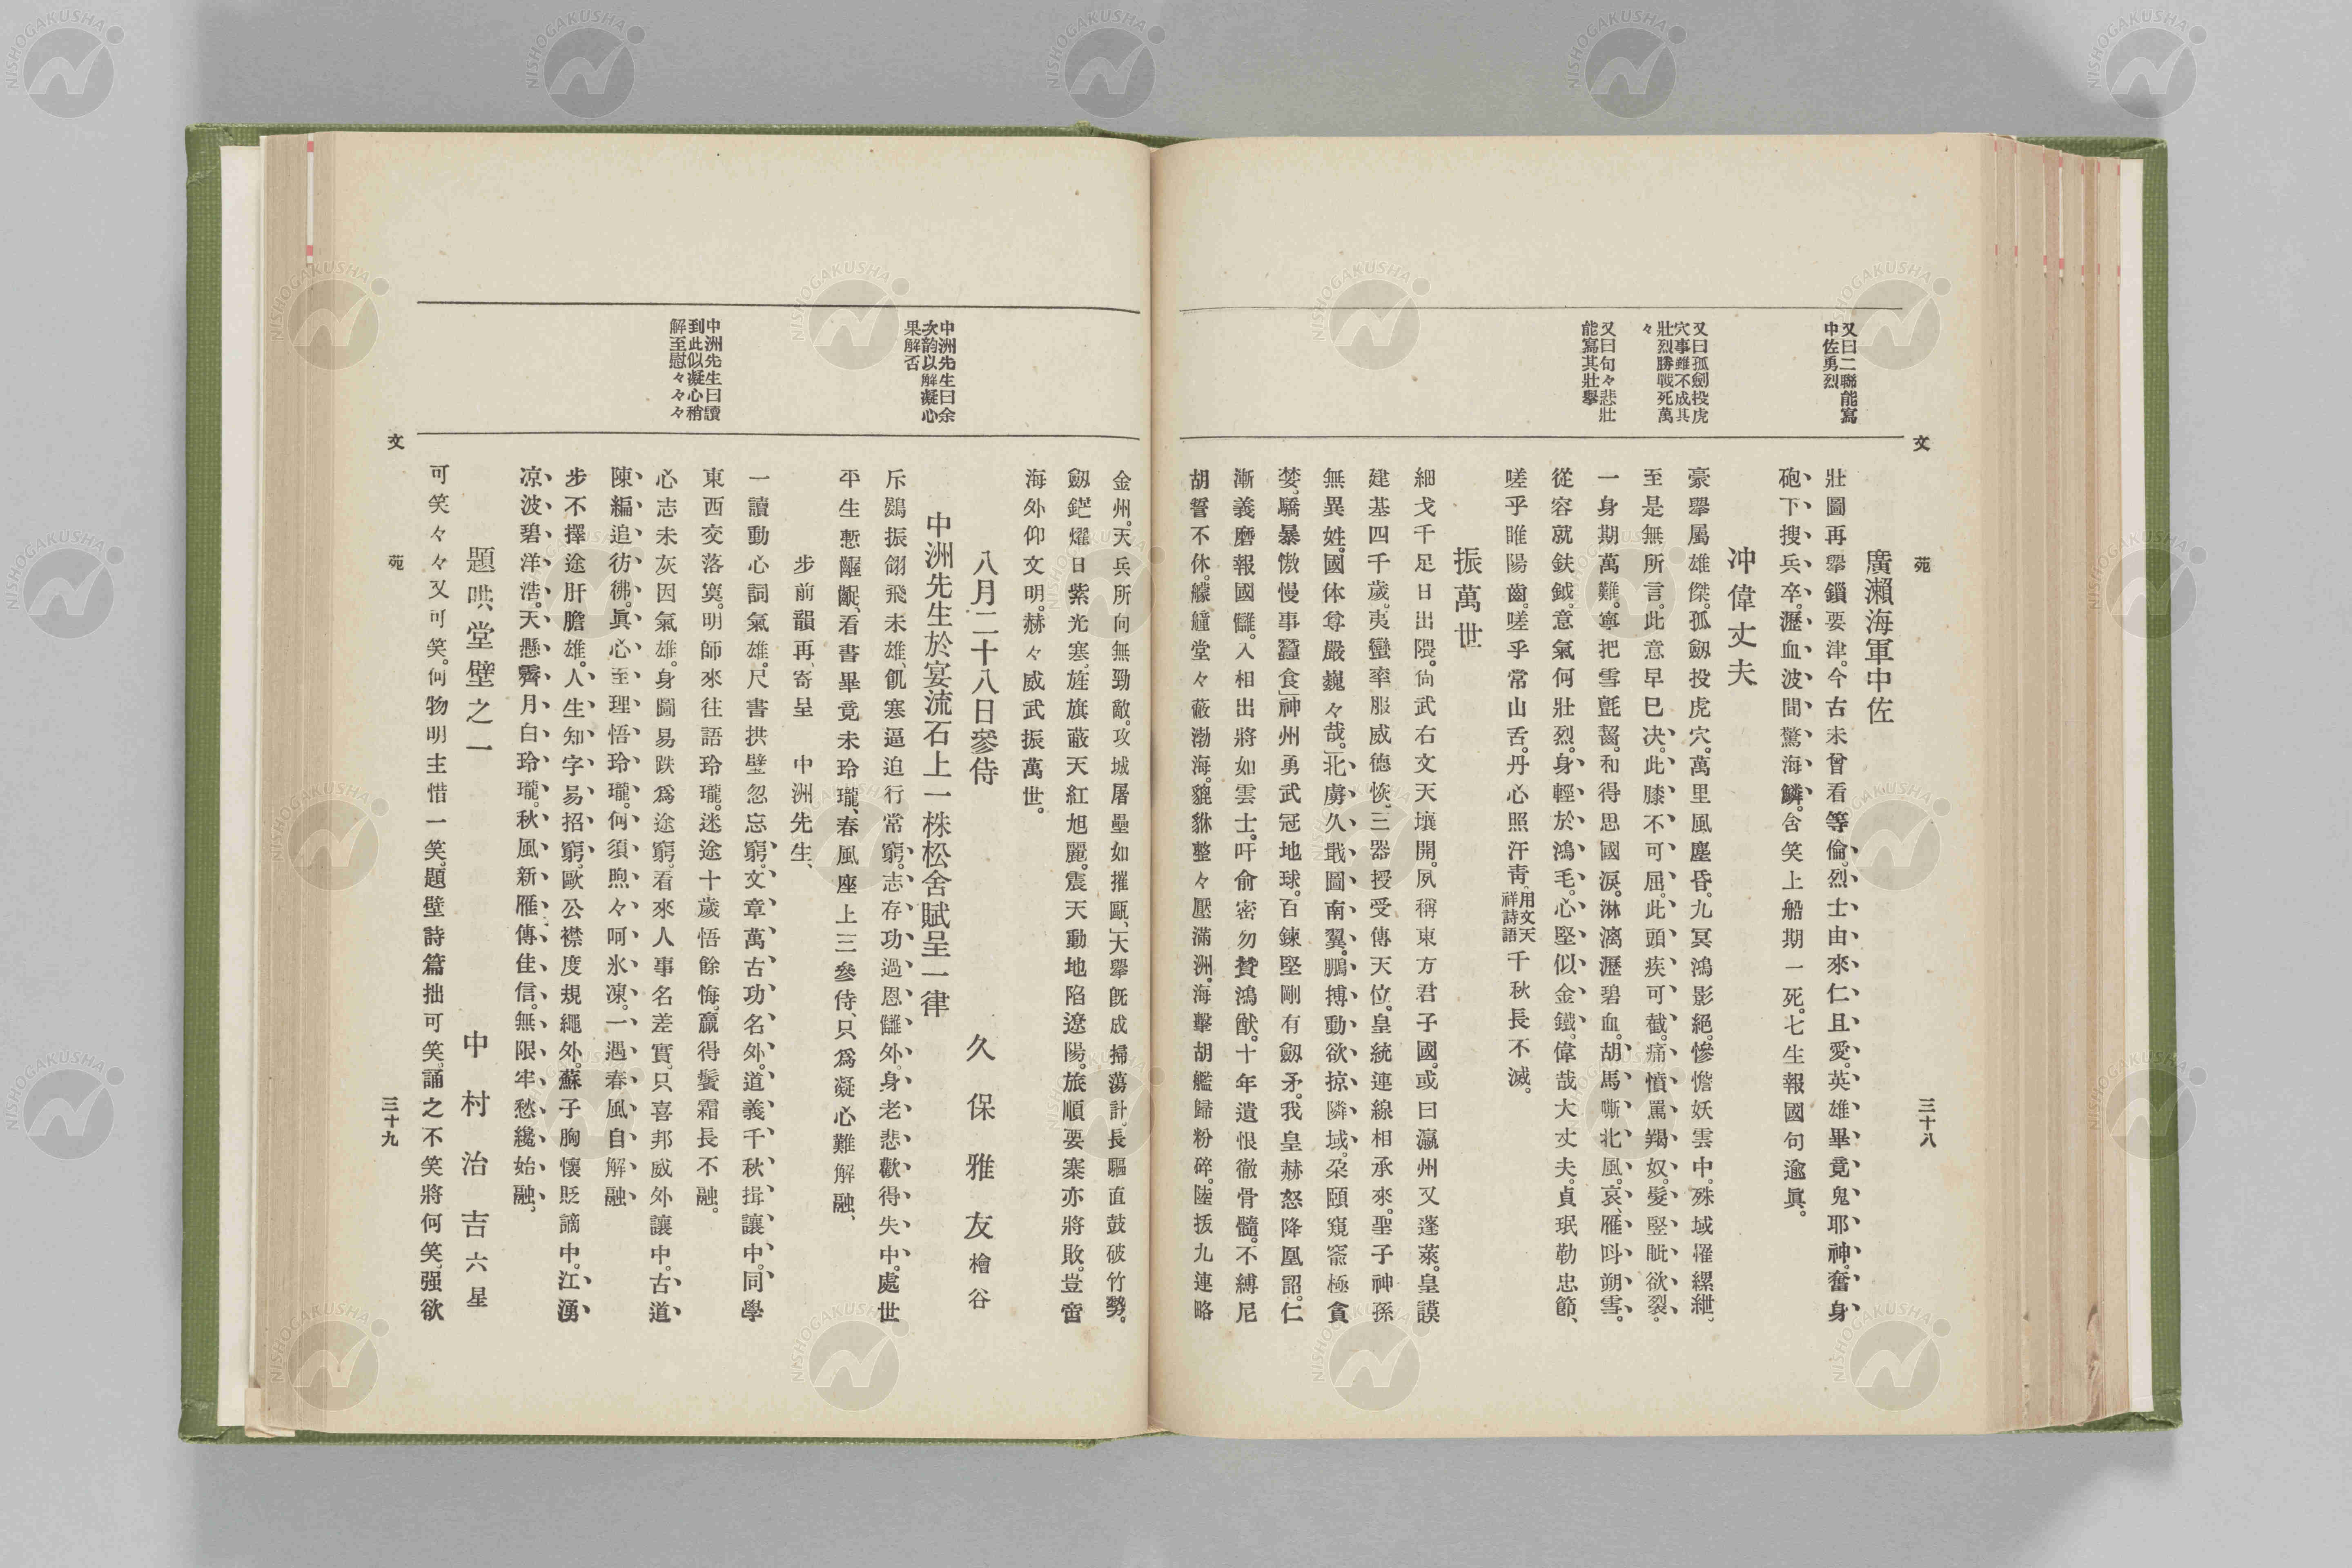 文 苑 三十八
又曰二聯能寫
中佐勇烈
又曰孤劍投虎
穴事雖不成其
壯烈勝戰死萬
々
又曰句々悲壯
能寫其壯擧
廣瀨海軍中佐
壯圖再擧鎻要津。今古未曾看等倫、烈士由來仁且愛。英雄畢竟鬼耶神。奮身
砲下搜兵卒。瀝血波間驚海鱗。含笑上船期一死。七生報國句逾眞。
冲偉丈夫
豪擧屬雄傑。孤劔投虎穴。萬里風塵昏。九冥鴻影絕。慘憺妖雲中。殊域罹縲紲、
至是無所言。此意早已决。此膝不可屈。此頭疾可截。痛憤罵羯奴。髮竪眦欲裂。
一身期萬難。寧把雪氈齧。和得思國淚。淋漓瀝碧血。胡馬嘶北風。哀雁叫朔雪。
從容就鈇鉞。意氣何壯烈。身輕於鴻毛。心堅似金鐵。偉哉大丈夫。貞珉勒忠節、
嗟乎睢陽齒。嗟乎常山舌。丹心照汗靑。用文天祥詩語千秋長不滅。
振萬世
細戈千足日出隈。尙武右文天壤開。夙稱東方君子國。或曰瀛州又蓬萊。皇謨
建基四千歲。夷蠻率服威德恢。三器授受傳天位。皇統連線相承來。聖子神孫
無異姓。國体尊嚴巍々哉。」北虜久戢圖南翼。鵬搏動欲掠隣域。朶頤窺窬極貪
婪、驕暴慠慢事蠶食」神州勇武冠地球。百鍊堅剛有劔矛。我皇赫怒降鳳詔。仁
漸義磨報國讎。入相出將如雲士。吁俞密勿賛鴻猷。十年遺恨徹骨髓。不縛尼
胡誓不休。艨艟堂々蔽渤海。貔貅整々壓滿洲。海擊胡艦歸粉碎。陸拔九連略
中洲先生曰余
次韵以解凝心
果解否
中洲先生曰讀
到此似凝心稍
解至慰々々々
金州。天兵所向無勁敵。攻城屠壘如摧甌、」大擧旣成掃蕩計。長驅直鼓破竹勢。
劔鋩燿日紫光寒。旌旗蔽天紅旭麗。震天動地陷遼陽。旅順要寨亦將敗。豈啻
海外仰文明。赫々威武振萬世。
八月二十八日參侍
中洲先生於宴流石上一株松舍賦呈一律
久保雅友檜谷
斥鷃振翎飛未雄、飢寒逼迫行常窮。志存功過恩讎外。身老悲歡得失中。處世
平生慙齷齪、看書畢竟未玲瓏、春風座上三參侍、只爲凝心難解融、
步前韻再、寄呈 中洲先生、
一讀動心詞氣雄。尺書拱璧忽忘窮。文章萬古功名外。道義千秋揖讓中。同學
東西交落寞。明師來往語玲瓏。迷途十歲悟餘悔。贏得鬢霜長不融。
心志未灰因氣雄。身圖易跌爲途窮。看來人事名差實。只喜邦威外讓中。古道
陳編追彷彿。眞心至理悟玲瓏。何須煦々呵氷凍。一遇春風自解融
步不擇途肝膽雄。人生知字易招窮。歐公襟度規繩外。蘇子胸懷貶謫中。江湧
凉波碧洋浩。天懸霽月白玲瓏。秋風新雁傳佳信。無限牢愁纔始融、
題哄堂壁之一
中村治吉六星
可笑々々又可笑。何物明主惜一笑。題壁詩篇拙可笑。誦之不笑將何笑。强欲
文 苑 三十九